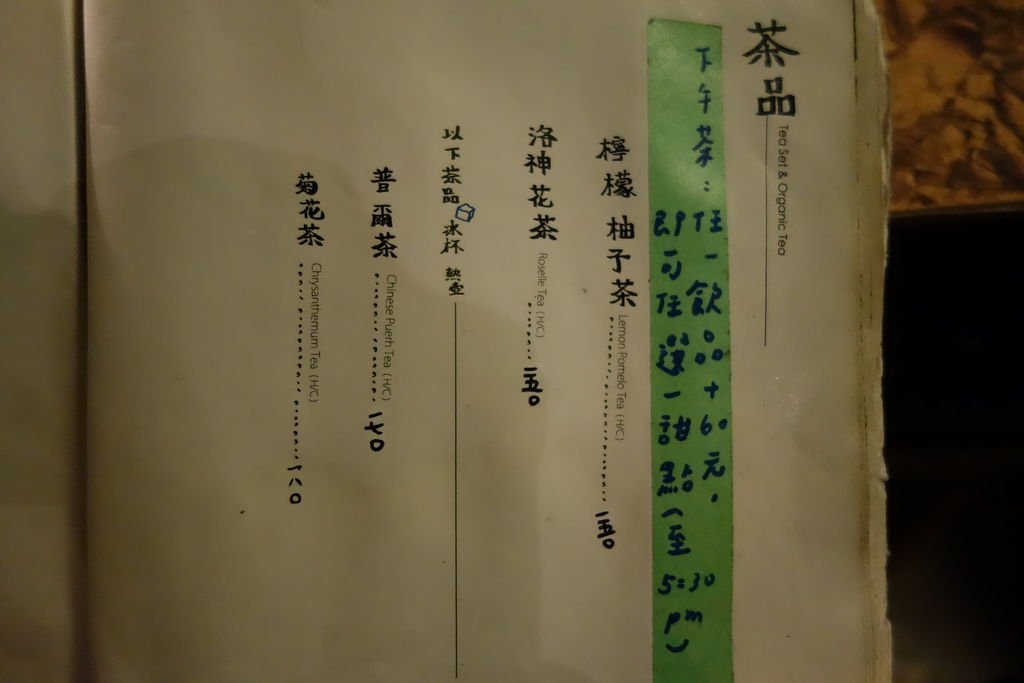 茶品
Tea Set & Organic Tea
下午茶：任一飲品+60元。
即可任選一甜點(至5:30pm)
檸檬柚子茶 Lemon Pomelo Tea (H/C) 一五0
洛神花茶 Roselle Tea (H/C) 一五0
以下茶品 冰杯 熱壺
普爾茶 Chinese Puerh Tea (H/C) 一七0
菊花茶 Chrysanthemum Tea (H/C) 一八0